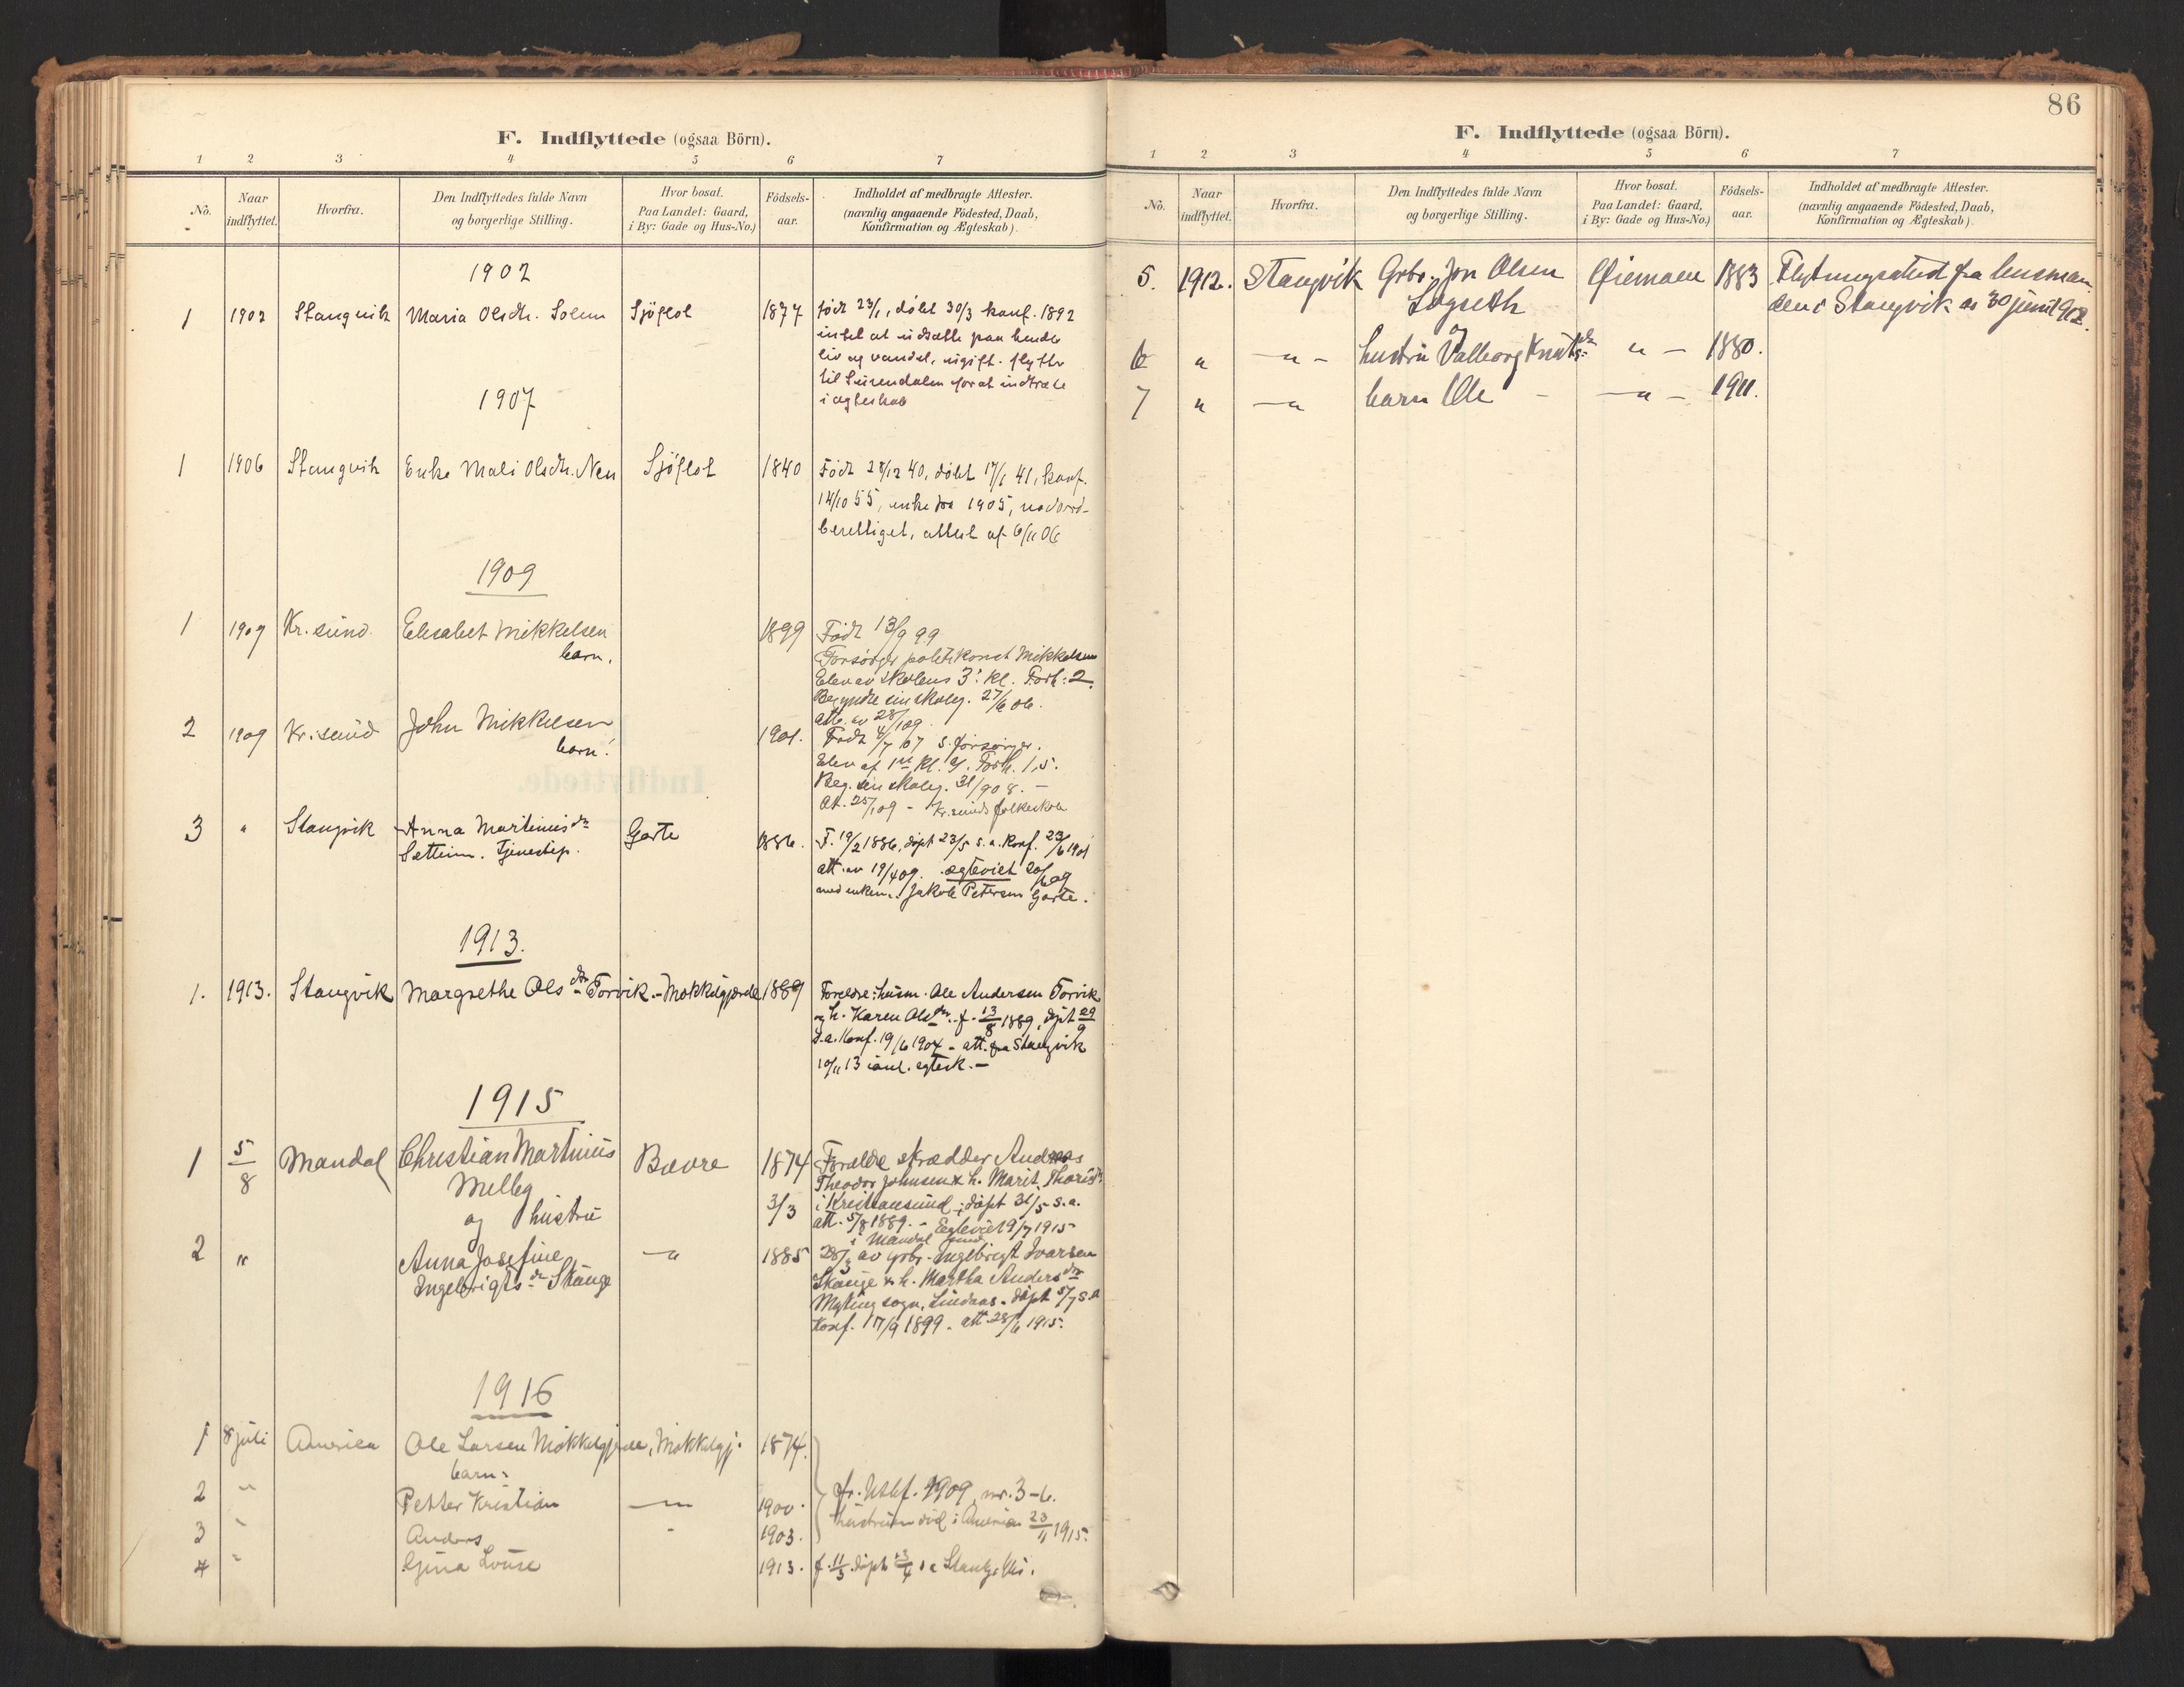 F. Indflyttede (ogsaa Börn).
1 2 3 4 5 6 7
No.
Naar indflyttet.
Hvorfra.
Den Indflyttedes fulde Navn og borgerlige Stilling.
Hvor bosat. Paa Landet: Gaard, i By: Gade og Hus-No.)
Födsels-aar.
Indholdet af medbragte Attester. (navnlig angaaende Födested, Daab, Konfirmation og Ægteskab).
1902
1 1902 Stangvik Maria Olsdtr. Solem Sjöflot 1877 født 23/1, døbt 30/3 konf. 1892
intet at udsætte paa hendes
liv og vandel, ugift. flytter
til Surendalen for at indtræde
i ægteskab
1907
1 1906 Stangvik Enke Mali Olsdtr. Nes Sjöflot 1840 Født 28/12 40, døbt 17/1 41, konf.
14/10 55, enke fra 1905, nadverd-
berettiget, attest af 6/11 06
1909
1 1909 Kr.sund. Elisabet Mikkelsen 1899 Født 13/9 99
barn. Forsörger politikonst Mikkelsen
Elev av skolens 3. kl. Forh: 2.
Begyndte sin skoleg. 27/6 06.
att. av 28/1 09.
2 1909 Kr.sund John Mikkelsen 1901. Født 4/7 01 s. forsörger.
barn. Elev af 1ste Kl. Forh. 1,5.
Beg. sin skoleg. 31/9 08. —
At. 25/1 09 - Kr.sunds folkeskole
3 " Stangvik Anna Martinusdtr Garte 1886. F. 19/2 1886, døpt 23/5 s.a. konf. 23/6 1901
Settem. Tjenestep. att. av 19/4 09. ægteviet 20/6 09
med enkem. Jakob Petersen Garte.
1913.
1. 1913. Stangvik Margrethe Olsdtr Torvik. - Mokkelgjerde 1889 Foreldre: husm. Ole Andersen Torvik
og h. Karen Olsdtr. f. 13/8 1889, døpt 29/9
s.a. Konf. 19/6 1904 - att. fra Stangvik
10/11 13 i anl. egtesk. —
1915
1 5/8 Mandal Christian Martinius Bævre 1874 Forældre skrædder Andreas
Melleg Theodor Johnsen & h. Marit
og hustru 3/3 i Kristiansund; døpt 31/5 s.a.
att. 5/8 1889. - Egteviet 9/7 1915
i Mandal
2 " Anna Josefine —"— 1885 28/3 av grbr. Ingebrigt Ivarsen
Ingebrigtsdtr Skauge Skauge & h. Martha Andersdtr
Myking sogn, Lindaas - døpt 5/7 s.a
Konf. 17/9 1899. att 28/6 1915.
1916
1 8 juli America Ole Larsen Mokkelgjerde, Mokkelgj. 1874.
barn: cfr. Utfl. 1909 nr. 3-6.
2 " Petter Kristian —"— 1900. hustruen död i America 23/11 1915.
3 " Anders " 1903.
4 " Gina Louise 1913. f. 11/3 døpt 13/4
86
F. Indflyttede (ogsaa Börn).
1 2 3 4 5 6 7
No.
Naar indflyttet.
Hvorfra.
Den Indflyttedes fulde Navn og borgerlige Stilling.
Hvor bosat. Paa Landet: Gaard, i By: Gade og Hus-No.)
Födsels-aar.
Indholdet af medbragte Attester. (navnlig angaaende Födested, Daab, Konfirmation og Ægteskab).
5. 1912. Stangvik Grbr. Jon Olsen Øiemoen 1883 Flytningsattest fra lensman
Løgseth den i Stangvik av 30 juni 1912.
og
6 " —"— hustru Valborg Knutsdtr " — 1880.
7 " —"— barn Ole — —"— 1911.